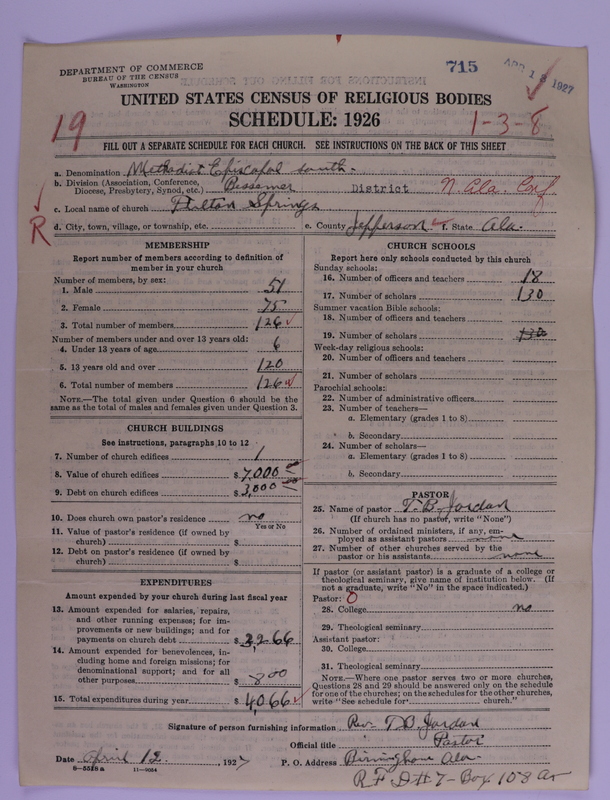 DEPARTMENT OF COMMERCE
BUREAU OF THE CENSUS
WASHINGTON
715
APR 18 1927
UNITED STATES CENSUS OF RELIGIOUS BODIES
SCHEDULE: 1926
19
1-3-8
FILL OUT A SEPARATE SCHEDULE FOR EACH CHURCH. SEE INSTRUCTIONS ON THE BACK OF THIS SHEET
a. Denomination Methodist Episcopal South.
b. Division (Association, Conference, Diocese, Presbytery, Synod, etc.) Bessemer District N. Ala. Conf
c. Local name of church Springs
R
d. City, town, village, or township, etc. e. County Jefferson f. State Ala.
MEMBERSHIP
Report number of members according to definition of
member in your church
Number of members, by sex:
1. Male 51
2. Female 75
3. Total number of members 126
Number of members under and over 13 years old:
4. Under 13 years of age 6
5. 13 years old and over 120
6. Total number of members 126
NOTE.—The total given under Question 6 should be
same as the total of males and females given under Question 3.
CHURCH BUILDINGS
See instructions, paragraphs 10 to 12
7. Number of church edifices 1
8. Value of church edifices $ 7,000 00
9. Debt on church edifices $ 3,000 00
10. Does church own pastor's residence no
Yes or No
11. Value of pastor's residence (if owned by
church) $
12. Debt on pastor's residence (if owned by
church) $
EXPENDITURES
Amount expended by your church during last fiscal year
13. Amount expended for salaries, repairs,
and other running expenses; for im-
provements or new buildings; and for
payments on church debt $ 3266
14. Amount expended for benevolences, in-
cluding home and foreign missions; for
denominational support; and for all
other purposes $ 800
15. Total expenditures during year $ 4,066
CHURCH SCHOOLS
Report here only schools conducted by this church
Sunday schools:
16. Number of officers and teachers 18
17. Number of scholars 130
Summer vacation Bible schools:
18. Number of officers and teachers
19. Number of scholars 130
Week-day religious schools:
20. Number of officers and teachers
21. Number of scholars
Parochial schools:
22. Number of administrative officers
23. Number of teachers—
a. Elementary (grades 1 to 8)
b. Secondary
24. Number of scholars—
a. Elementary (grades 1 to 8)
b. Secondary
PASTOR
25. Name of pastor T. B. Jordan
(If church has no pastor, write "None")
26. Number of ordained ministers, if any, em-
ployed as assistant pastors none
27. Number of other churches served by the
pastor or his assistants none
If pastor (or assistant pastor) is a graduate of a college or
theological seminary, give name of institution below. (If
not a graduate, write "No" in the space indicated.)
Pastor: 0
28. College no
29. Theological seminary
Assistant pastor:
30. College
31. Theological seminary
NOTE.—Where one pastor serves two or more churches,
Questions 28 and 29 should be answered only on the schedule
for one of the churches; on the schedules for the other churches,
write "See schedule for church."
Signature of person furnishing information Rev. T B Jordan
Official title Pastor
Date April 12, 1927 P. O. Address Birmingham Ala.
8—5518 a 11—9084
R F D # 7 - Box 108 A